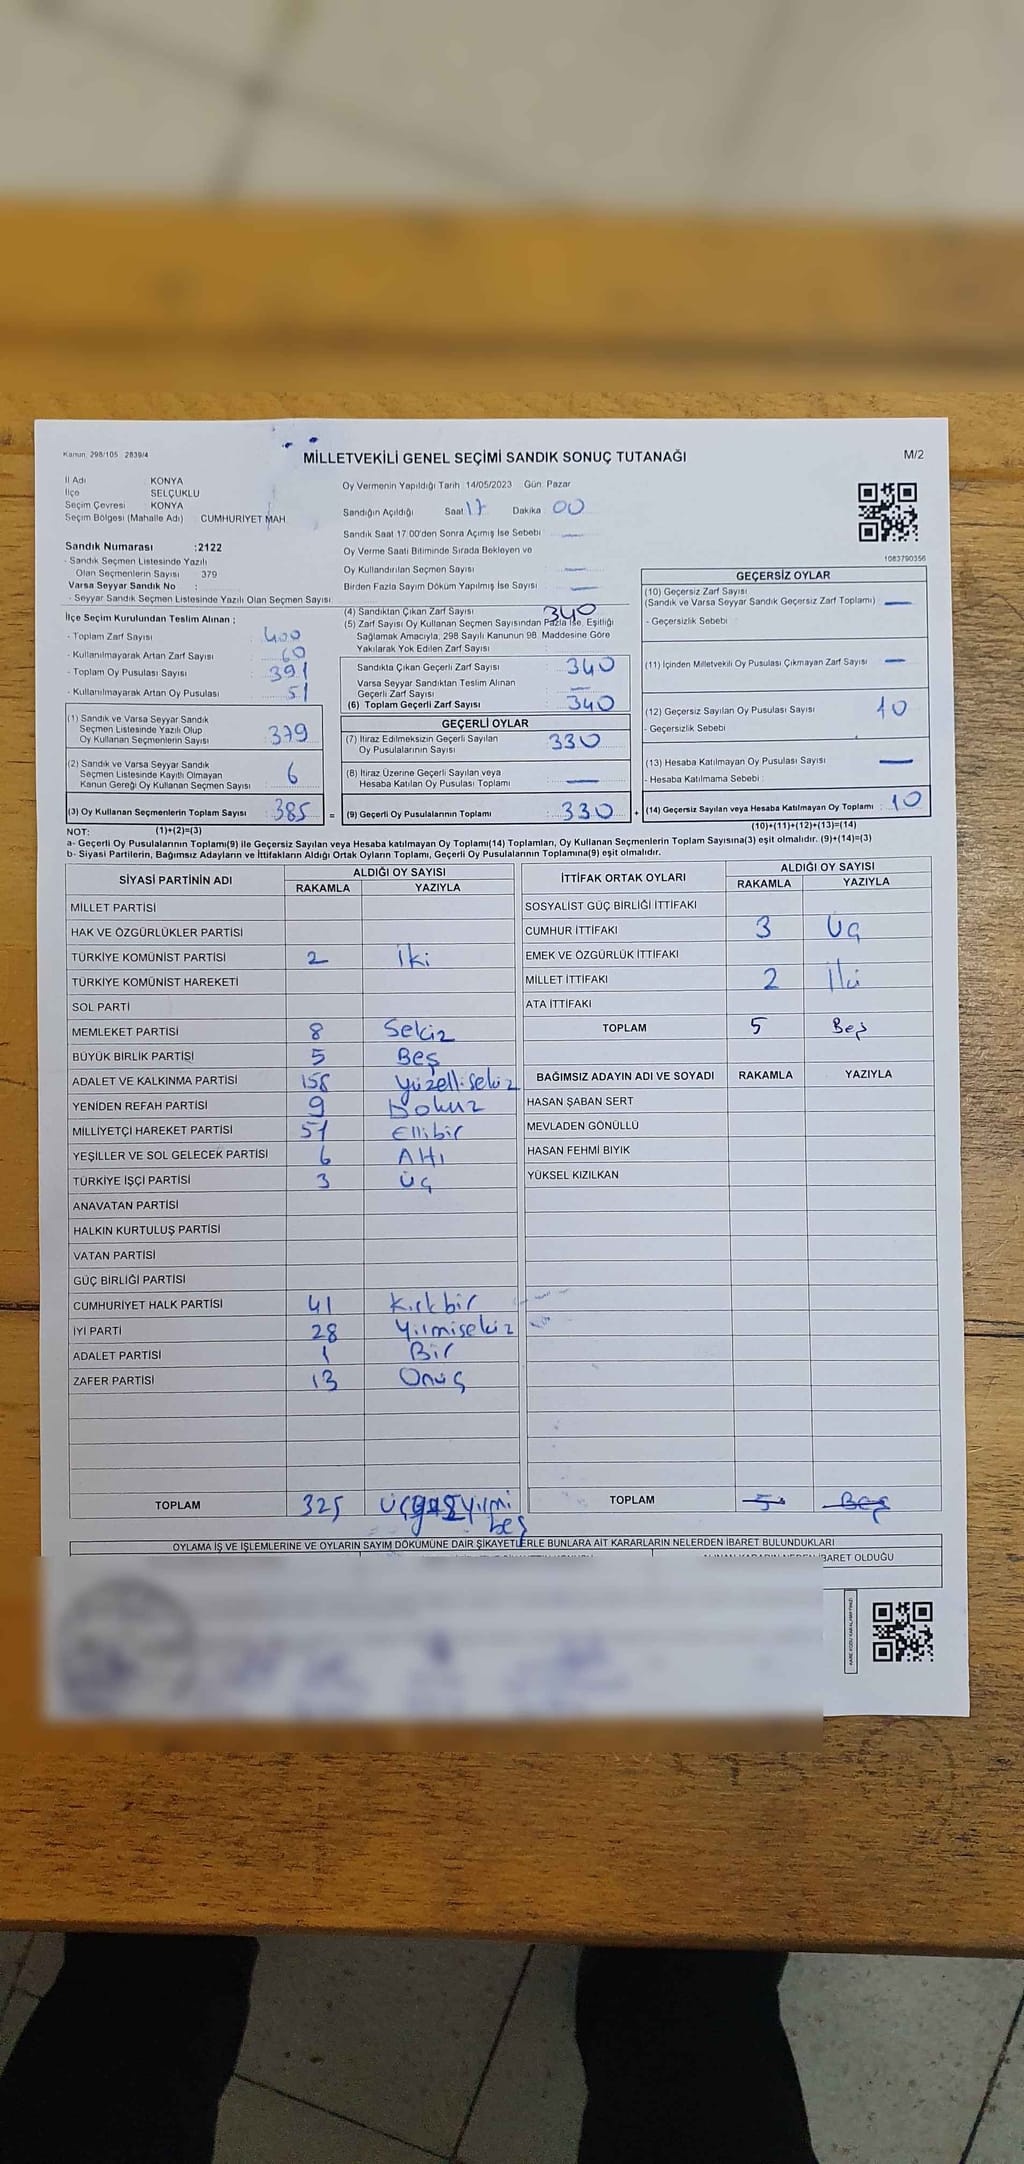 Kanun, 298/105 2839/4
MİLLETVEKİLİ GENEL SEÇİMİ SANDIK SONUÇ TUTANAĞI
M/2
İl Adı KONYA
İlçe SELÇUKLU
Seçim Çevresi KONYA
Seçim Bölgesi (Mahalle Adı) CUMHURİYET MAH.
Sandık Numarası :2122
- Sandık Seçmen Listesinde Yazılı
Olan Seçmenlerin Sayısı 379
Varsa Seyyar Sandık No :
- Seyyar Sandık Seçmen Listesinde Yazılı Olan Seçmen Sayısı:
Oy Vermenin Yapıldığı Tarih 14/05/2023 Gün: Pazar
Sandığın Açıldığı Saat 17 Dakika 00
Sandık Saat 17.00'den Sonra Açımış İse Sebebi
Oy Verme Saati Bitiminde Sırada Bekleyen ve
Oy Kullandırılan Seçmen Sayısı
Birden Fazla Sayım Döküm Yapılmış İse Sayısı
1083790356
İlçe Seçim Kurulundan Teslim Alınan ;
- Toplam Zarf Sayısı 400
- Kullanılmayarak Artan Zarf Sayısı 60
- Toplam Oy Pusulası Sayısı 391
- Kullanılmayarak Artan Oy Pusulası 51
(1) Sandık ve Varsa Seyyar Sandık
Seçmen Listesinde Yazılı Olup
Oy Kullanan Seçmenlerin Sayısı 379
(2) Sandık ve Varsa Seyyar Sandık
Seçmen Listesinde Kayıtlı Olmayan
Kanun Gereği Oy Kullanan Seçmen Sayısı 6
(3) Oy Kullanan Seçmenlerin Toplam Sayısı : 385 =
(4) Sandıktan Çıkan Zarf Sayısı 340
(5) Zarf Sayısı Oy Kullanan Seçmen Sayısından Fazla İse, Eşitliği
Sağlamak Amacıyla, 298 Sayılı Kanunun 98. Maddesine Göre
Yakılarak Yok Edilen Zarf Sayısı
Sandıkta Çıkan Geçerli Zarf Sayısı : 340
Varsa Seyyar Sandıktan Teslim Alınan
Geçerli Zarf Sayısı
(6) Toplam Geçerli Zarf Sayısı : 340
GEÇERLİ OYLAR
(7) İtiraz Edilmeksizin Geçerli Sayılan
Oy Pusulalarının Sayısı 330
(8) İtiraz Üzerine Geçerli Sayılan veya
Hesaba Katılan Oy Pusulası Toplamı
(9) Geçerli Oy Pusulalarının Toplamı : 330 +
GEÇERSİZ OYLAR
(10) Geçersiz Zarf Sayısı
(Sandık ve Varsa Seyyar Sandık Geçersiz Zarf Toplamı)
- Geçersizlik Sebebi
(11) İçinden Milletvekili Oy Pusulası Çıkmayan Zarf Sayısı
(12) Geçersiz Sayılan Oy Pusulası Sayısı : 10
- Geçersizlik Sebebi
(13) Hesaba Katılmayan Oy Pusulası Sayısı
- Hesaba Katılmama Sebebi
(14) Geçersiz Sayılan veya Hesaba Katılmayan Oy Toplamı : 10
NOT: (1)+(2)=(3)
(10)+(11)+(12)+(13)=(14)
a- Geçerli Oy Pusulalarının Toplamı(9) ile Geçersiz Sayılan veya Hesaba katılmayan Oy Toplamı(14) Toplamları, Oy Kullanan Seçmenlerin Toplam Sayısına(3) eşit olmalıdır. (9)+(14)=(3)
b- Siyasi Partilerin, Bağımsız Adayların ve İttifakların Aldığı Ortak Oyların Toplamı, Geçerli Oy Pusulalarının Toplamına(9) eşit olmalıdır.
SİYASİ PARTİNİN ADI ALDIĞI OY SAYISI
RAKAMLA YAZIYLA
MİLLET PARTİSİ
HAK VE ÖZGÜRLÜKLER PARTİSİ
TÜRKİYE KOMÜNİST PARTİSİ 2 İki
TÜRKİYE KOMÜNİST HAREKETİ
SOL PARTİ
MEMLEKET PARTİSİ 8 Sekiz
BÜYÜK BİRLİK PARTİSİ 5 Beş
ADALET VE KALKINMA PARTİSİ 158 Yüzellisekiz
YENİDEN REFAH PARTİSİ 9 Dokuz
MİLLİYETÇİ HAREKET PARTİSİ 51 Ellibir
YEŞİLLER VE SOL GELECEK PARTİSİ 6 Altı
TÜRKİYE İŞÇİ PARTİSİ 3 Üç
ANAVATAN PARTİSİ
HALKIN KURTULUŞ PARTİSİ
VATAN PARTİSİ
GÜÇ BİRLİĞİ PARTİSİ
CUMHURİYET HALK PARTİSİ 41 Kırkbir
İYİ PARTİ 28 Yirmisekiz
ADALET PARTİSİ 1 Bir
ZAFER PARTİSİ 13 Onüç
TOPLAM 325 Üçyüzyirmi
beş
İTTİFAK ORTAK OYLARI ALDIĞI OY SAYISI
RAKAMLA YAZIYLA
SOSYALİST GÜÇ BİRLİĞİ İTTİFAKI
CUMHUR İTTİFAKI 3 Üç
EMEK VE ÖZGÜRLÜK İTTİFAKI
MİLLET İTTİFAKI 2 İki
ATA İTTİFAKI
TOPLAM 5 Beş
BAĞIMSIZ ADAYIN ADI VE SOYADI RAKAMLA YAZIYLA
HASAN ŞABAN SERT
MEVLADEN GÖNÜLLÜ
HASAN FEHMİ BIYIK
YÜKSEL KIZILKAN
TOPLAM 5 Beş
OYLAMA İŞ VE İŞLEMLERİNE VE OYLARIN SAYIM DÖKÜMÜNE DAİR ŞİKAYETLERLE BUNLARA AİT KARARLARIN NELERDEN İBARET BULUNDUKLARI
İBARET OLDUĞU